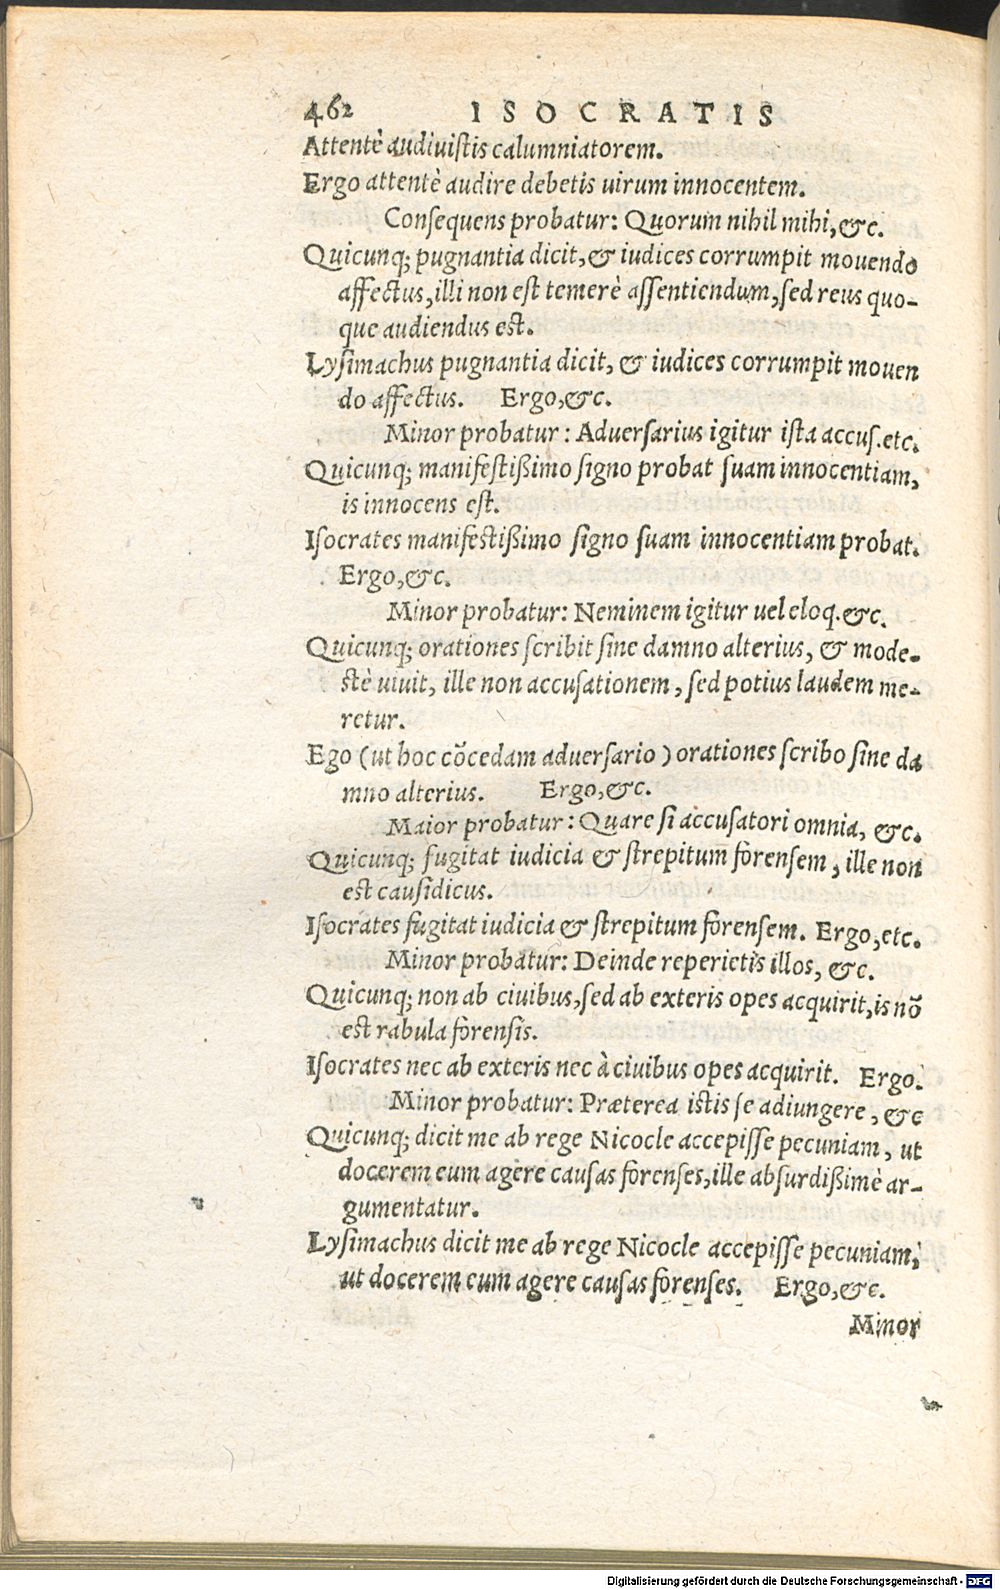 462 ISOCRATIS
Attentè audiuistis calumniatorem.
Ergo attentè audire debetis uirum innocentem.
Consequens probatur: Quorum nihil mihi, &c.
Quicunq; pugnantia dicit, & iudices corrumpit mouendo
affectus, illi non est temerè assentiendum, sed reus quo-
que audiendus est.
Lysimachus pugnantia dicit, & iudices corrumpit mouen
do affectus. Ergo, &c.
Minor probatur: Aduersarius igitur ista accus. etc.
Quicunq; manifestißimo signo probat suam innocentiam,
is innocens est.
Isocrates manifestißimo signo suam innocentiam probat.
Ergo, &c.
Minor probatur: Neminem igitur uel eloq. &c.
Quicunq; orationes scribit sine damno alterius, & mode-
stè uiuit, ille non accusationem, sed potius laudem me-
retur.
Ego (ut hoc cõcedam aduersario) orationes scribo sine da
mno alterius. Ergo, &c.
Maior probatur: Quare si accusatori omnia, &c.
Quicunq; fugitat iudicia & strepitum forensem, ille non
est causidicus.
Isocrates fugitat iudicia & strepitum forensem. Ergo, etc.
Minor probatur: Deinde reperietis illos, &c.
Quicunq; non ab ciuibus, sed ab exteris opes acquirit, is nõ
est rabula forensis.
Isocrates nec ab exteris nec à ciuibus opes acquirit. Ergo.
Minor probatur: Præterea istis se adiungere, &c
Quicunq; dicit me ab rege Nicocle accepisse pecuniam, ut
docerem eum agere causas forenses, ille absurdißimè ar-
gumentatur.
Lysimachus dicit me ab rege Nicocle accepisse pecuniam,
ut docerem eum agere causas forenses. Ergo, &c.
Minor
Digitalisierung gefördert durch die Deutsche Forschungsgemeinschaft - DFG